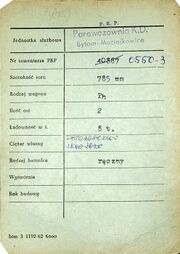 P. K. P.
Jednostka służbowa
Parowozownia K.D.
Bytom-Maciejkowice
Nr inwentarza PKP
0550-3
Szerokość toru
785 mm
Rodzaj wagonu
Ilość osi
2
Ładowność w t.
5 t.
Ciężar własny
Rodzaj hamulca
ręczny
Wytwórnia
Rok budowy